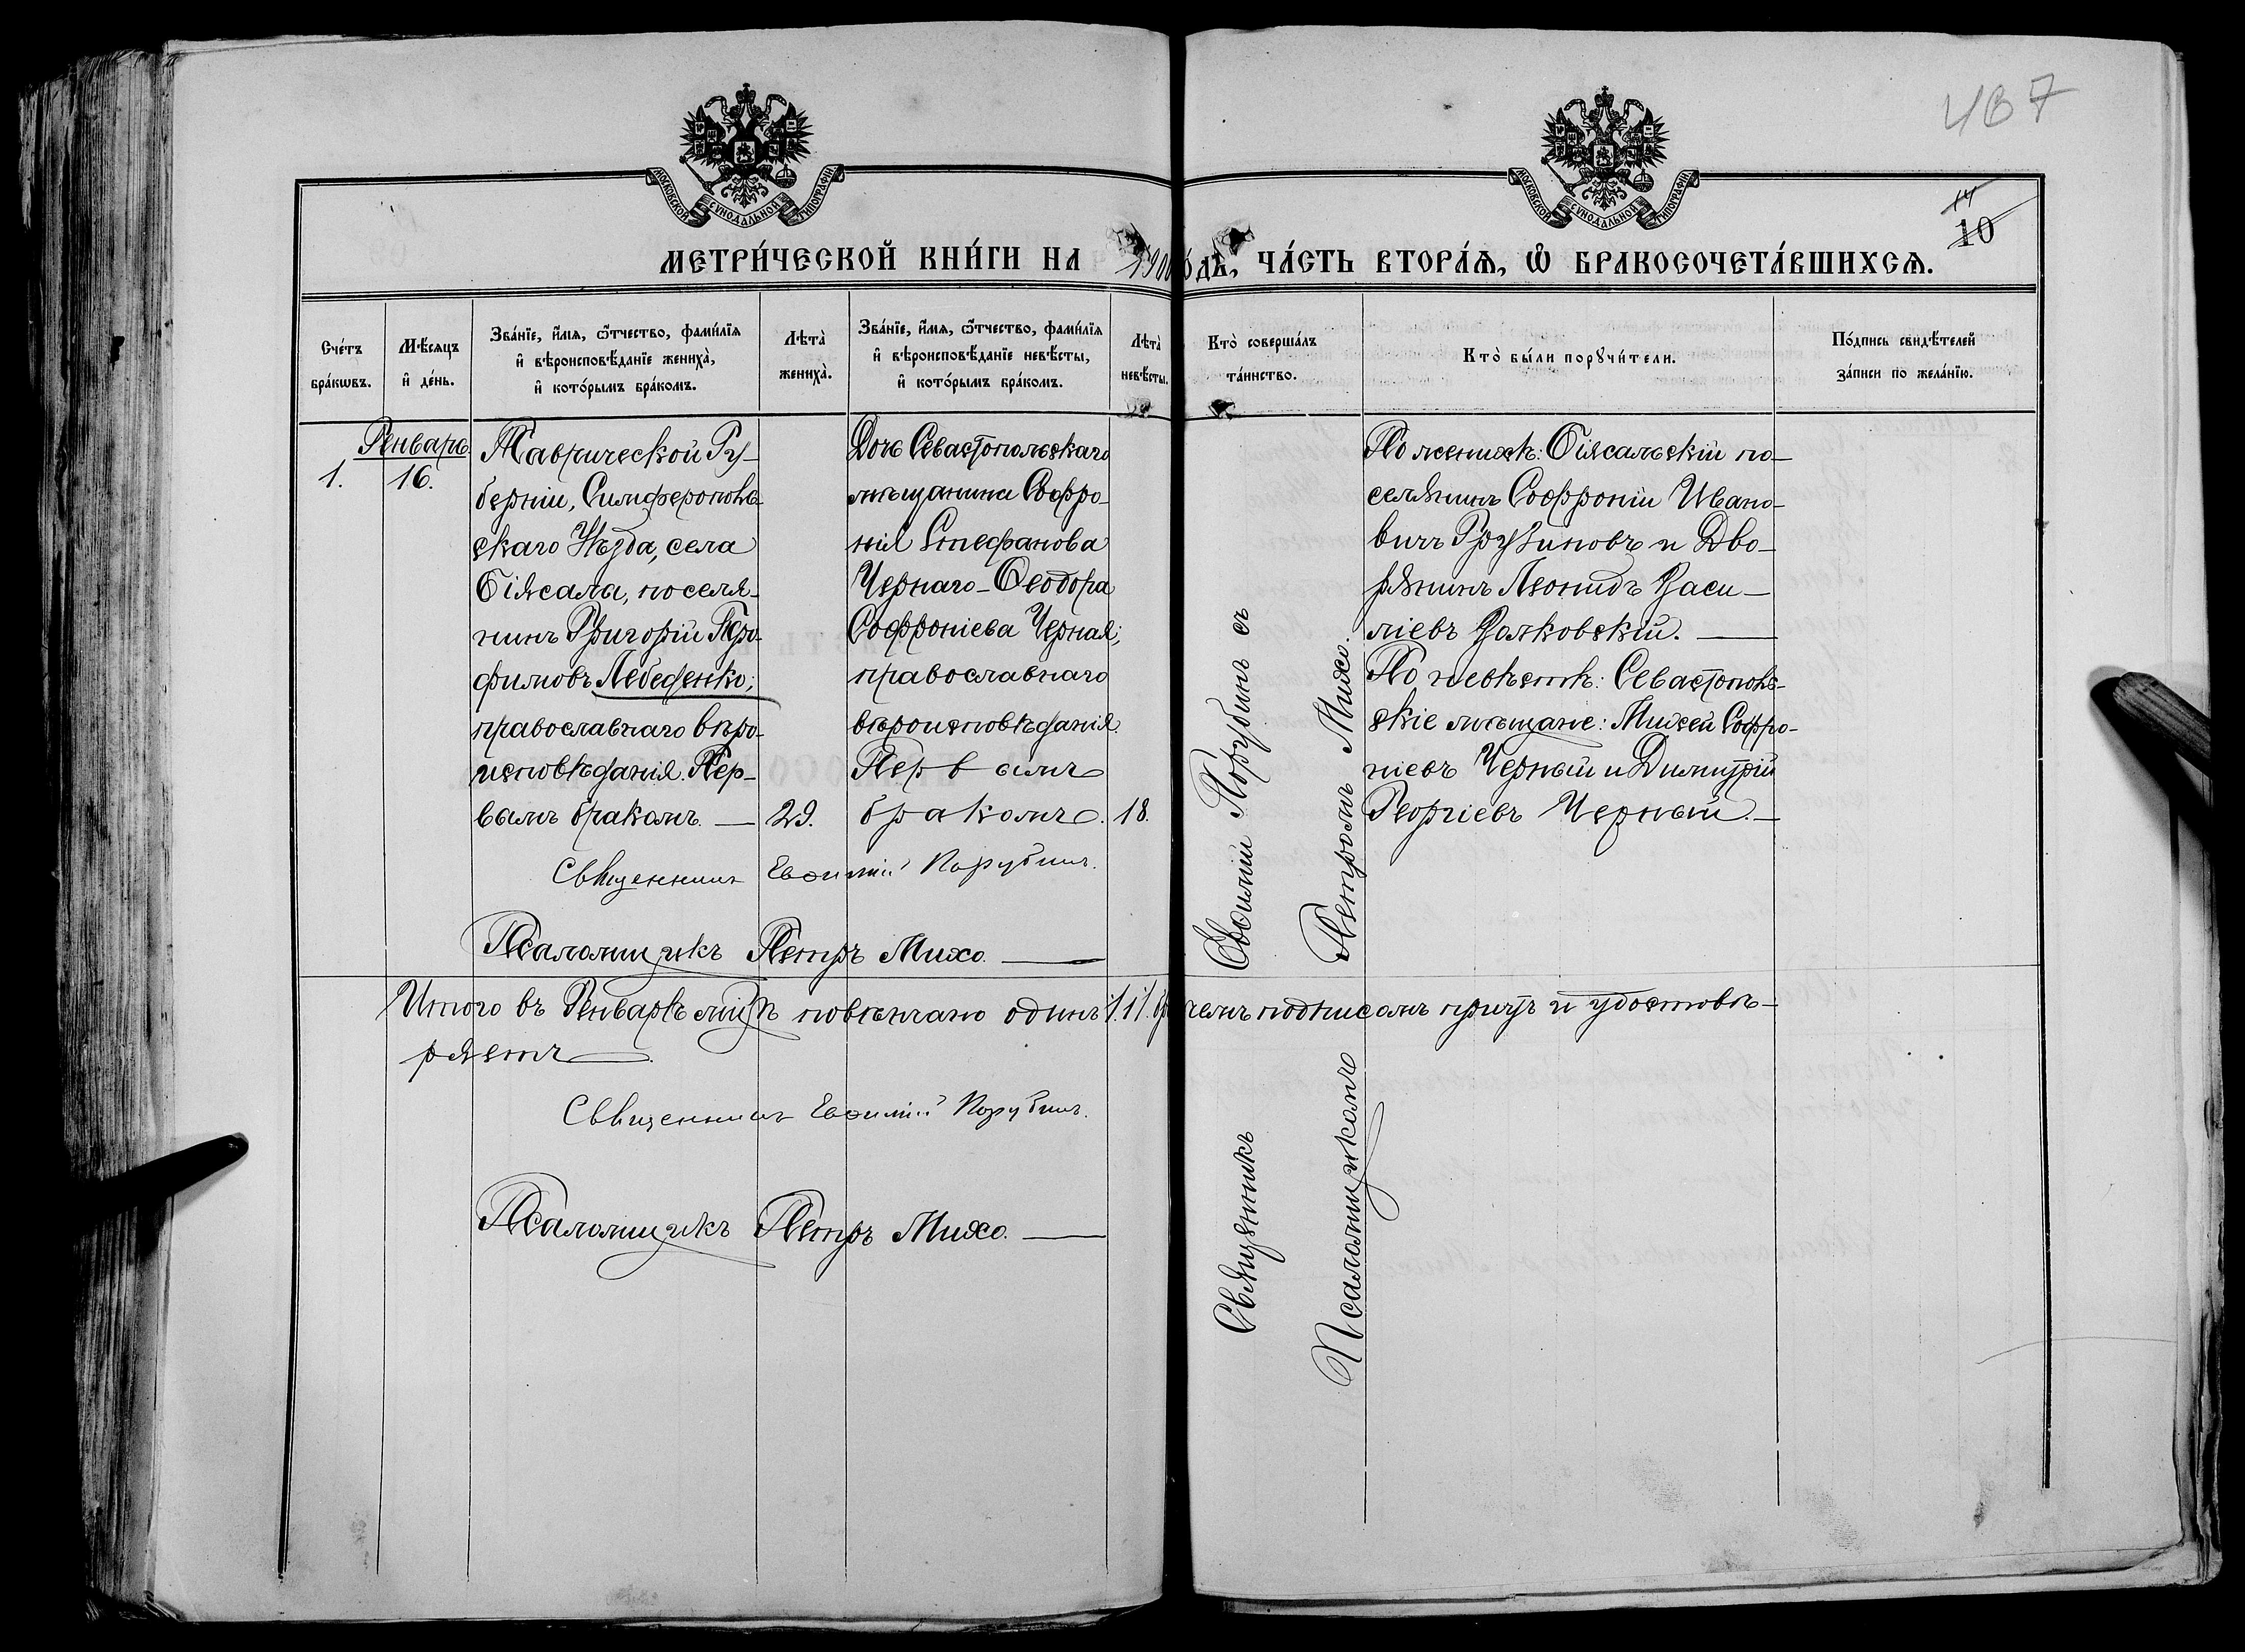 487
МОСКОВСКОЙ СУНОДАЛЬНОЙ ТИПОГРАФІИ
МОСКОВСКОЙ СУНОДАЛЬНОЙ ТИПОГРАФІИ
14
10
МЕТРИ́ЧЕСКОЙ КНИ́ГИ НА 1900 годъ, ЧА́СТЬ ВТОРА́Я, Ѡ҆ БРАКОСОЧЕТА́ВШИХСЯ.
Сче́тъ
бра́кѡвъ.
Мѣ́сяцъ
и҆ де́нь.
Зва́нїе, и҆́мя, ѻ҆́тчество, фами́лїя
и҆ вѣроисповѣ́данїе жениха̀,
и҆ кото́рымъ бра́комъ.
Лѣта̀
жениха̀.
Зва́нїе, и҆́мя, ѻ҆́тчество, фами́лїя
и҆ вѣроисповѣ́данїе невѣ́сты,
и҆ кото́рымъ бра́комъ.
Лѣта̀
невѣ́сты.
Кто̀ соверша́лъ
та́инство.
Кто̀ бы́ли порꙋчи́тели.
По́дпись свидѣ́телей
за́писи по жела́нїю.
Январь
1.
16.
Таврической Гу-
берніи, Симферополь-
скаго Уѣзда, села
Біясала, поселя-
нинъ Григорій Тро-
фимовъ Лебеденко;
православнаго вѣро-
исповѣданія. Пер-
вымъ бракомъ. —
29.
Дочь Севастопольскаго
мѣщанина Софро-
нія Стефанова
Чернаго - Ѳеодора
Софроніева Черная;
православнаго
вѣроисповѣданія.
Первымъ
бракомъ.
18.
Священникъ Евѳимій Порубинъ.
Псаломщикъ Петръ Михо. —
Священникъ Евѳимій Порубинъ съ
Псаломщикомъ Петромъ Михо.
По женихѣ: Біясальскій по-
селянинъ Софроній Ивано-
вичъ Грузиновъ и Дво-
рянинъ Леонидъ Васи-
ліевъ Волковскій. —
По невѣстѣ: Севастополь-
скіе мѣщане: Михей Софро-
ніевъ Черный и Димитрій
Георгіевъ Черный. —
Итого въ Январѣ повѣнчано одинъ /1/ чемъ подписомъ причтъ и удостовѣ-
ряетъ —.
Священникъ Евѳимій Порубинъ.
Псаломщикъ Петръ Михо. —